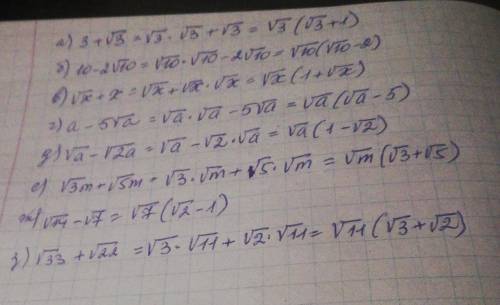 а) 3+√3 = √3·√3+√3 = √3(√3+1)
б) 10-2√10 = √10·√10-2√10 = √10(√10-2)
в) √x+x = √x+√x·√x = √x(1+√x)
г) a-5√a = √a·√a-5√a = √a(√a-5)
д) √a-√2a = √a-√2·√a = √a(1-√2)
е) √3m+√5m = √3·√m+√5·√m = √m(√3+√5)
ж) √14-√7 = √7(√2-1)
з) √33+√22 = √3·√11+√2·√11 = √11(√3+√2)